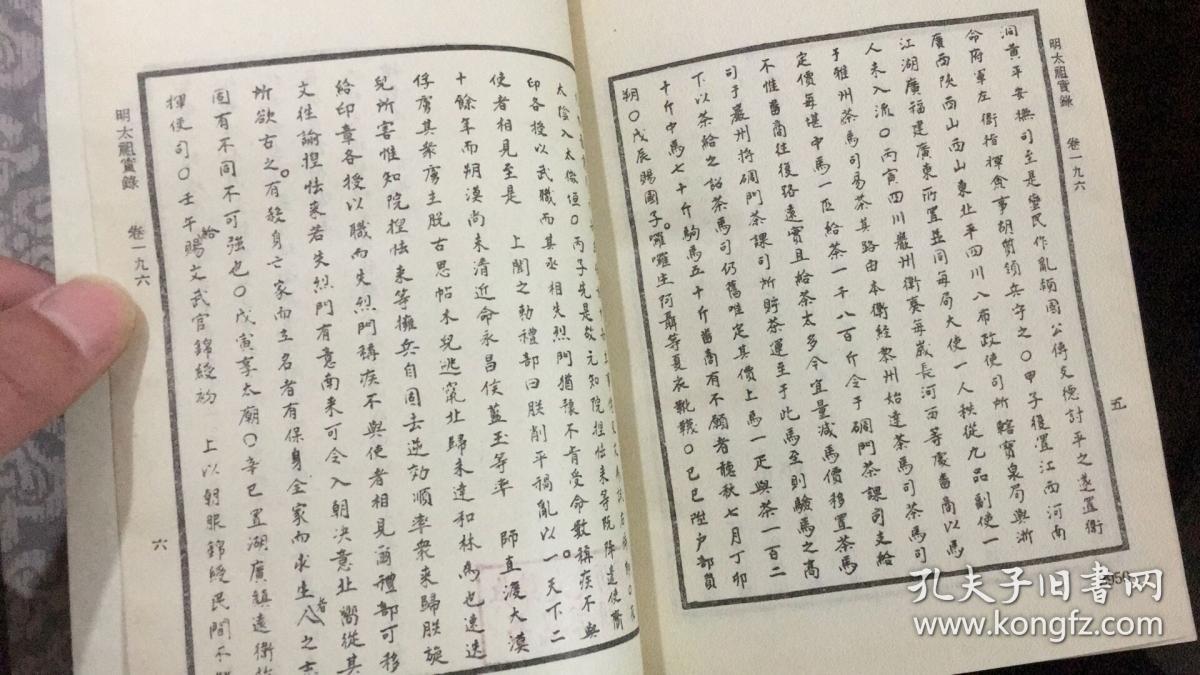 明太祖實錄 卷一九六
五
洞黃平安撫司至是蠻民作亂潁國公傅友德討平之遂置衛
命府軍左衛指揮僉事胡質領兵守之〇甲子復置江西河南
廣西陝西山西山東北平四川八布政使司所轄寶泉局與浙
江湖廣福建廣東所置並同每局大使一人秩從九品副使一
人未入流〇丙寅四川巖州衛奏每歲長河西等處番商以馬
于雅州茶馬司易茶其路由本衛經黎州始達茶馬司茶馬司
定價每堪中馬一匹給茶一千八百斤令于碉門茶課司支給
不惟番商往復路遠實且給茶太多今宜量減馬價移置茶馬
司于巖州將碉門茶課司所貯茶運至于此馬至則驗馬之高
下以茶給之詔茶馬司仍舊唯定其價上馬一疋與茶一百二
十斤中馬七十斤駒馬五十斤番商有不願者聽秋七月丁卯
朔〇戊辰賜國子囉囉生阿聶等夏衣靴韈〇己巳陞户部員
太陰入太微垣〇丙子先是故元知院捏怯來等既降遣使齎
印各授以武職而其丞相失烈門猶豫不肯受命數稱疾不與
使者相見至是 上聞之勑禮部曰朕削平禍亂以一天下二
十餘年而朔漠尚未清近命永昌侯藍玉等率 師直渡大漠
俘虜其衆虜主脫古思帖木兒逃竄北歸未達和林為也速迭
兒所害惟知院捏怯來等擁兵自固去逆効順率衆來歸朕旋
給印章各授以職而失烈門稱疾不與使者相見爾禮部可移
文往諭捏怯來若失烈門有意南來可令入朝決意北嚮從其
所欲古之有殺身亡家而立名者有保身全家而求生者人之志
固有不同不可強也〇戊寅享太廟〇辛巳置湖廣鎮遠衛指
揮使司〇壬午賜文武官錦綬給 上以朝服錦綬民間不
明太祖實錄 卷一九六
六
孔夫子旧书网
www.kongfz.com